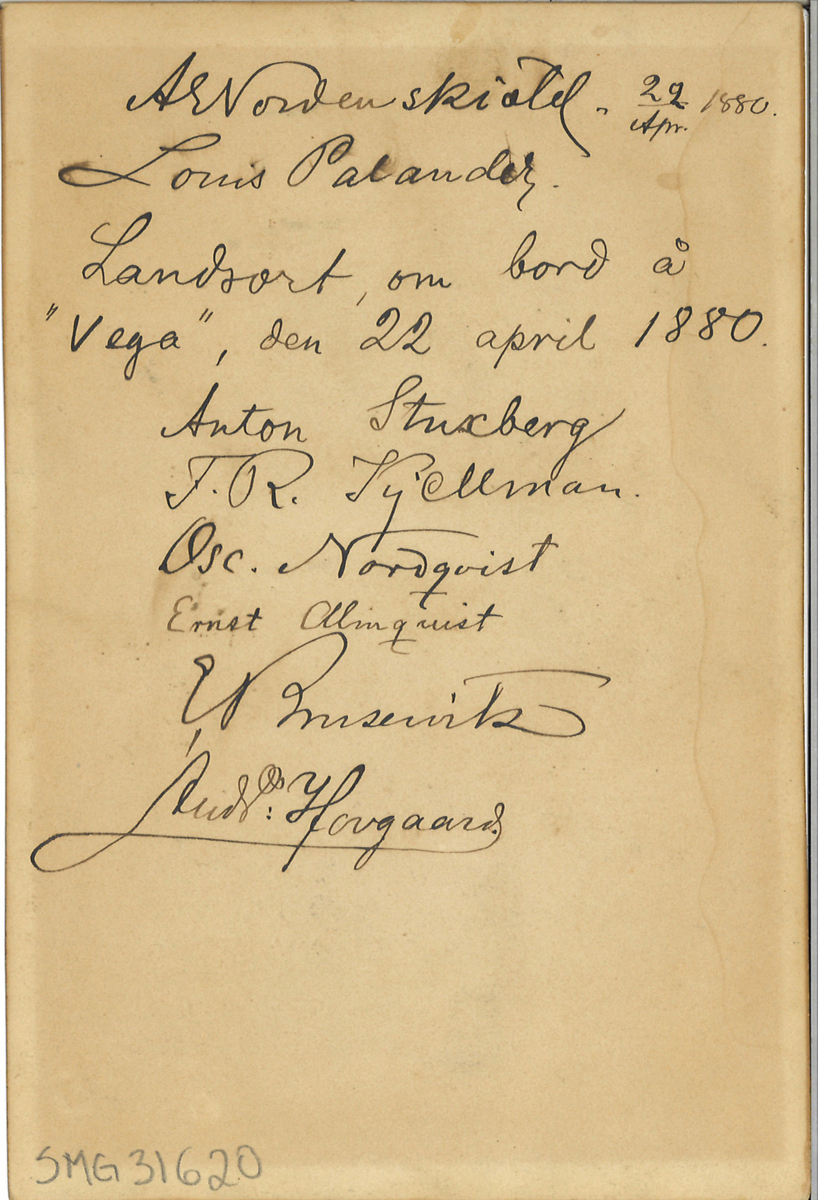 AENordenskiöld. 22/Apr. 1880.
Louis Palander.
Landsort, om bord å
"Vega", den 22 april 1880.
Anton Stuxberg
F. R. Kjellman.
Osc. Nordqvist
Ernst Almquist
E Brusewitz
Andr: Hovgaard.
SMG 31620